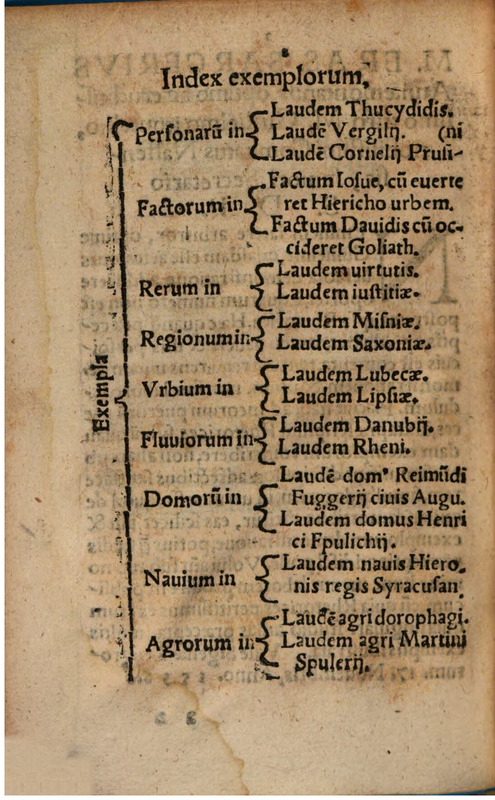 Index exemplorum,
Exempla
Personarũ in
Laudem Thucydidis.
Laudē Vergilij. (ni
Laudē Cornelij Prusi-
Factorum in
Factum Iosue, cũ everte
ret Hiericho urbem.
Factum Dauidis cũ oc-
cideret Goliath.
Rerum in
Laudem uirtutis.
Laudem iustitiæ.
Regionum in
Laudem Misniæ.
Laudem Saxoniæ.
Vrbium in
Laudem Lubecæ.
Laudem Lipsiæ.
Fluviorum in
Laudem Danubij.
Laudem Rheni.
Domorũ in
Laudē domꝰ Reimũdi
Fuggerij ciuis Augu.
Laudem domus Henri
ci Fpulichij.
Nauium in
Laudem nauis Hiero.
nis regis Syracusan
Agrorum in
Laudē agri dorophagi.
Laudem agri Martini
Spulerij.